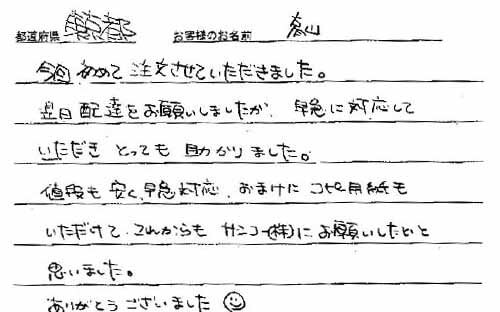 都道府県 東京都 お客様のお名前
今回、初めて注文させていただきました。
翌日配達をお願いしましたが、早急に対応して
いただき とっても助かりました。
値段も安く、早急対応、おまけに コピー用紙も
いただけて、これからも サンコー(株)にお願いしたいと
思いました。
ありがとうございました